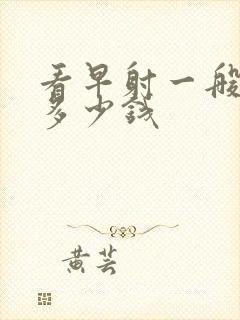 看早射一般
多少钱
黄芸